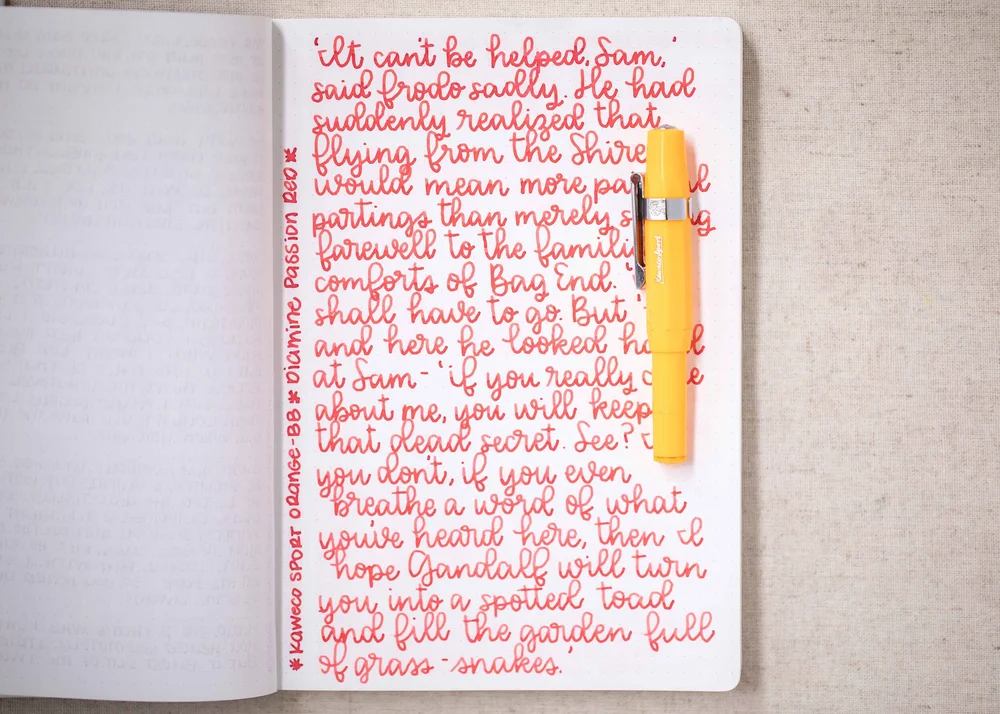 'It can't be helped, Sam,'
said Frodo sadly. He had
suddenly realized that
flying from the Shire
would mean more
partings than merely
farewell to the
comforts of Bag End. '
shall have to go. But '
and here he looked
at Sam - 'if you really
about me, you will keep
that dead secret. See?
you don't, if you even
breathe a word of what
you've heard here, then I
hope Gandalf will turn
you into a spotted toad
and fill the garden full
of grass-snakes.'
* Kaweco SPORT ORange-BB * Diamine Passion Red *
Kaweco Sport